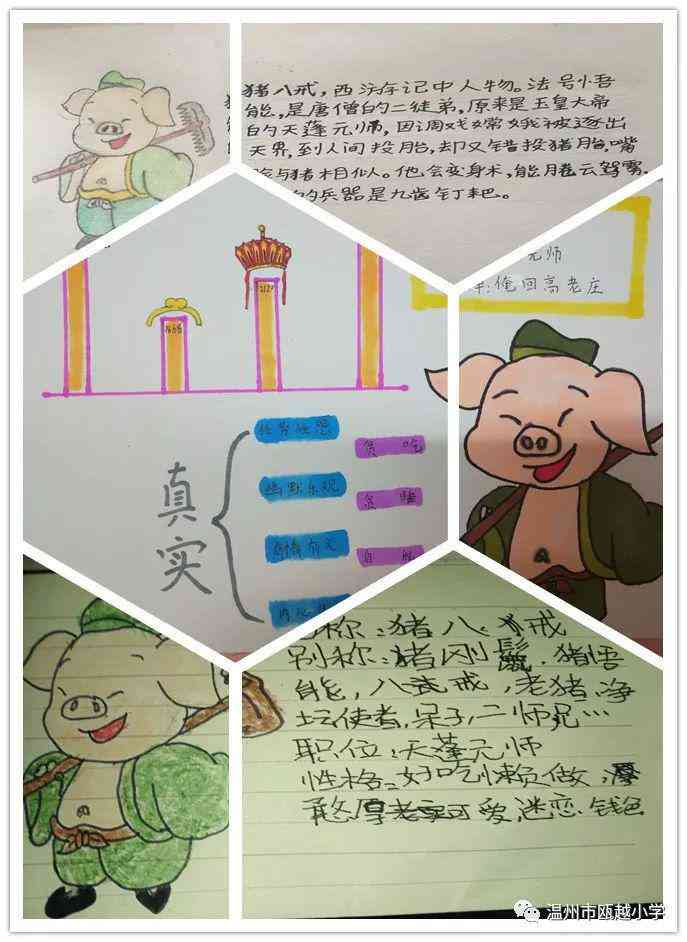 猪八戒，西游记中人物。法号悟
能，是唐僧的二徒弟，原来是玉皇大帝
的天蓬元帅，因调戏嫦娥被逐出
天界，到人间投胎，却又错投猪胎，嘴
与猪相似。他会变身术，能腾云驾雾，
的兵器是九齿钉耙。
元师
俺回高老庄
真实
任劳任怨
贪吃
幽默乐观
贪睡
有情有义
自私
称：猪八戒
别称：猪刚鬣．猪悟
能，八戒，老猪，净
坛使者，呆子，二师兄…
职位：天蓬元师
性格：好吃懒做，
憨厚老实可爱，迷恋钱色
温州市瓯越小学